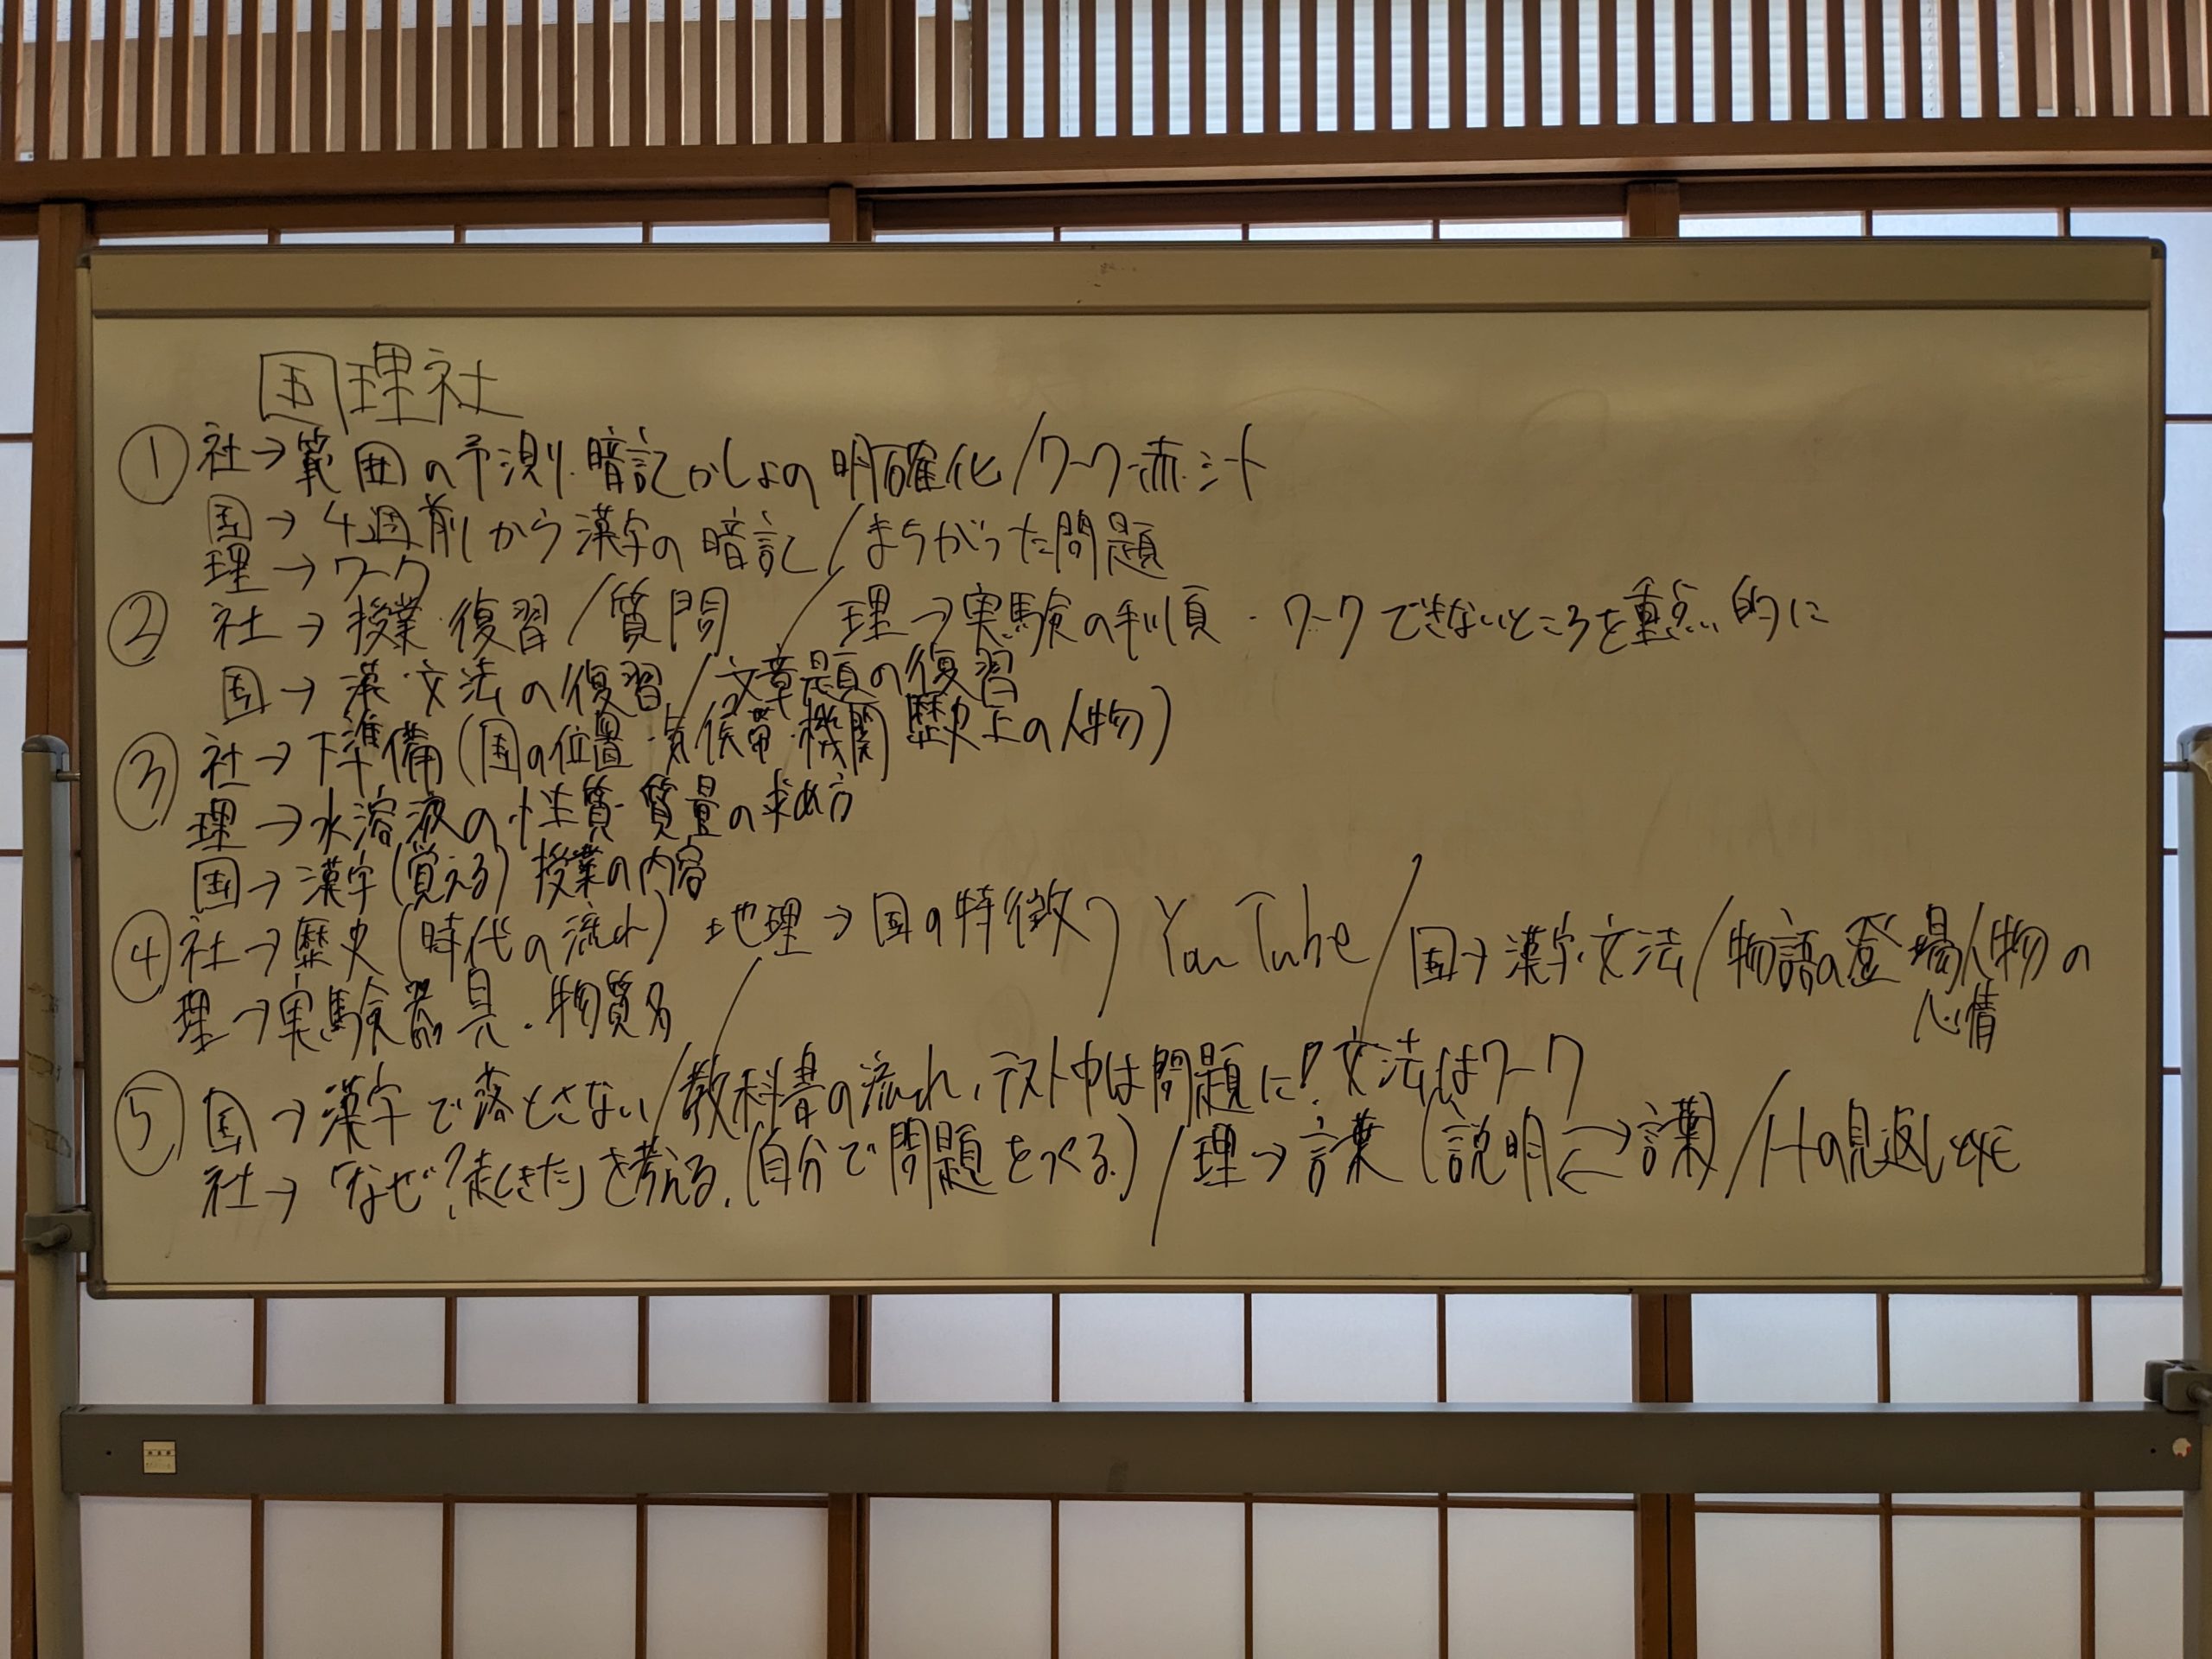 国理社
① 社→範囲の予測・暗記かしょの明確化/ワーク・赤シート
国→4週前から漢字の暗記/まちがった問題
理→ワーク
② 社→授業・復習/質問/理→実験の手順・ワークできないところを重点的に
国→漢・文法の復習/文章題の復習
③ 社→下準備(国の位置・気候帯・機関 歴史上の人物)
理→水溶液の性質・質量の求め方
国→漢字(覚える)授業の内容
④ 社→歴史(時代の流れ) 地理→国の特徴) YouTube/国→漢字・文法/物語の登場人物の
心情
理→実験器具・物質名
⑤ 国→漢字で落とさない/教科書の流れ、テスト中は問題に!文法はワーク
社→「なぜ?起きた」を考える.(自分で問題をつくる.)/理→言葉(説明⇄言葉)/の見返し